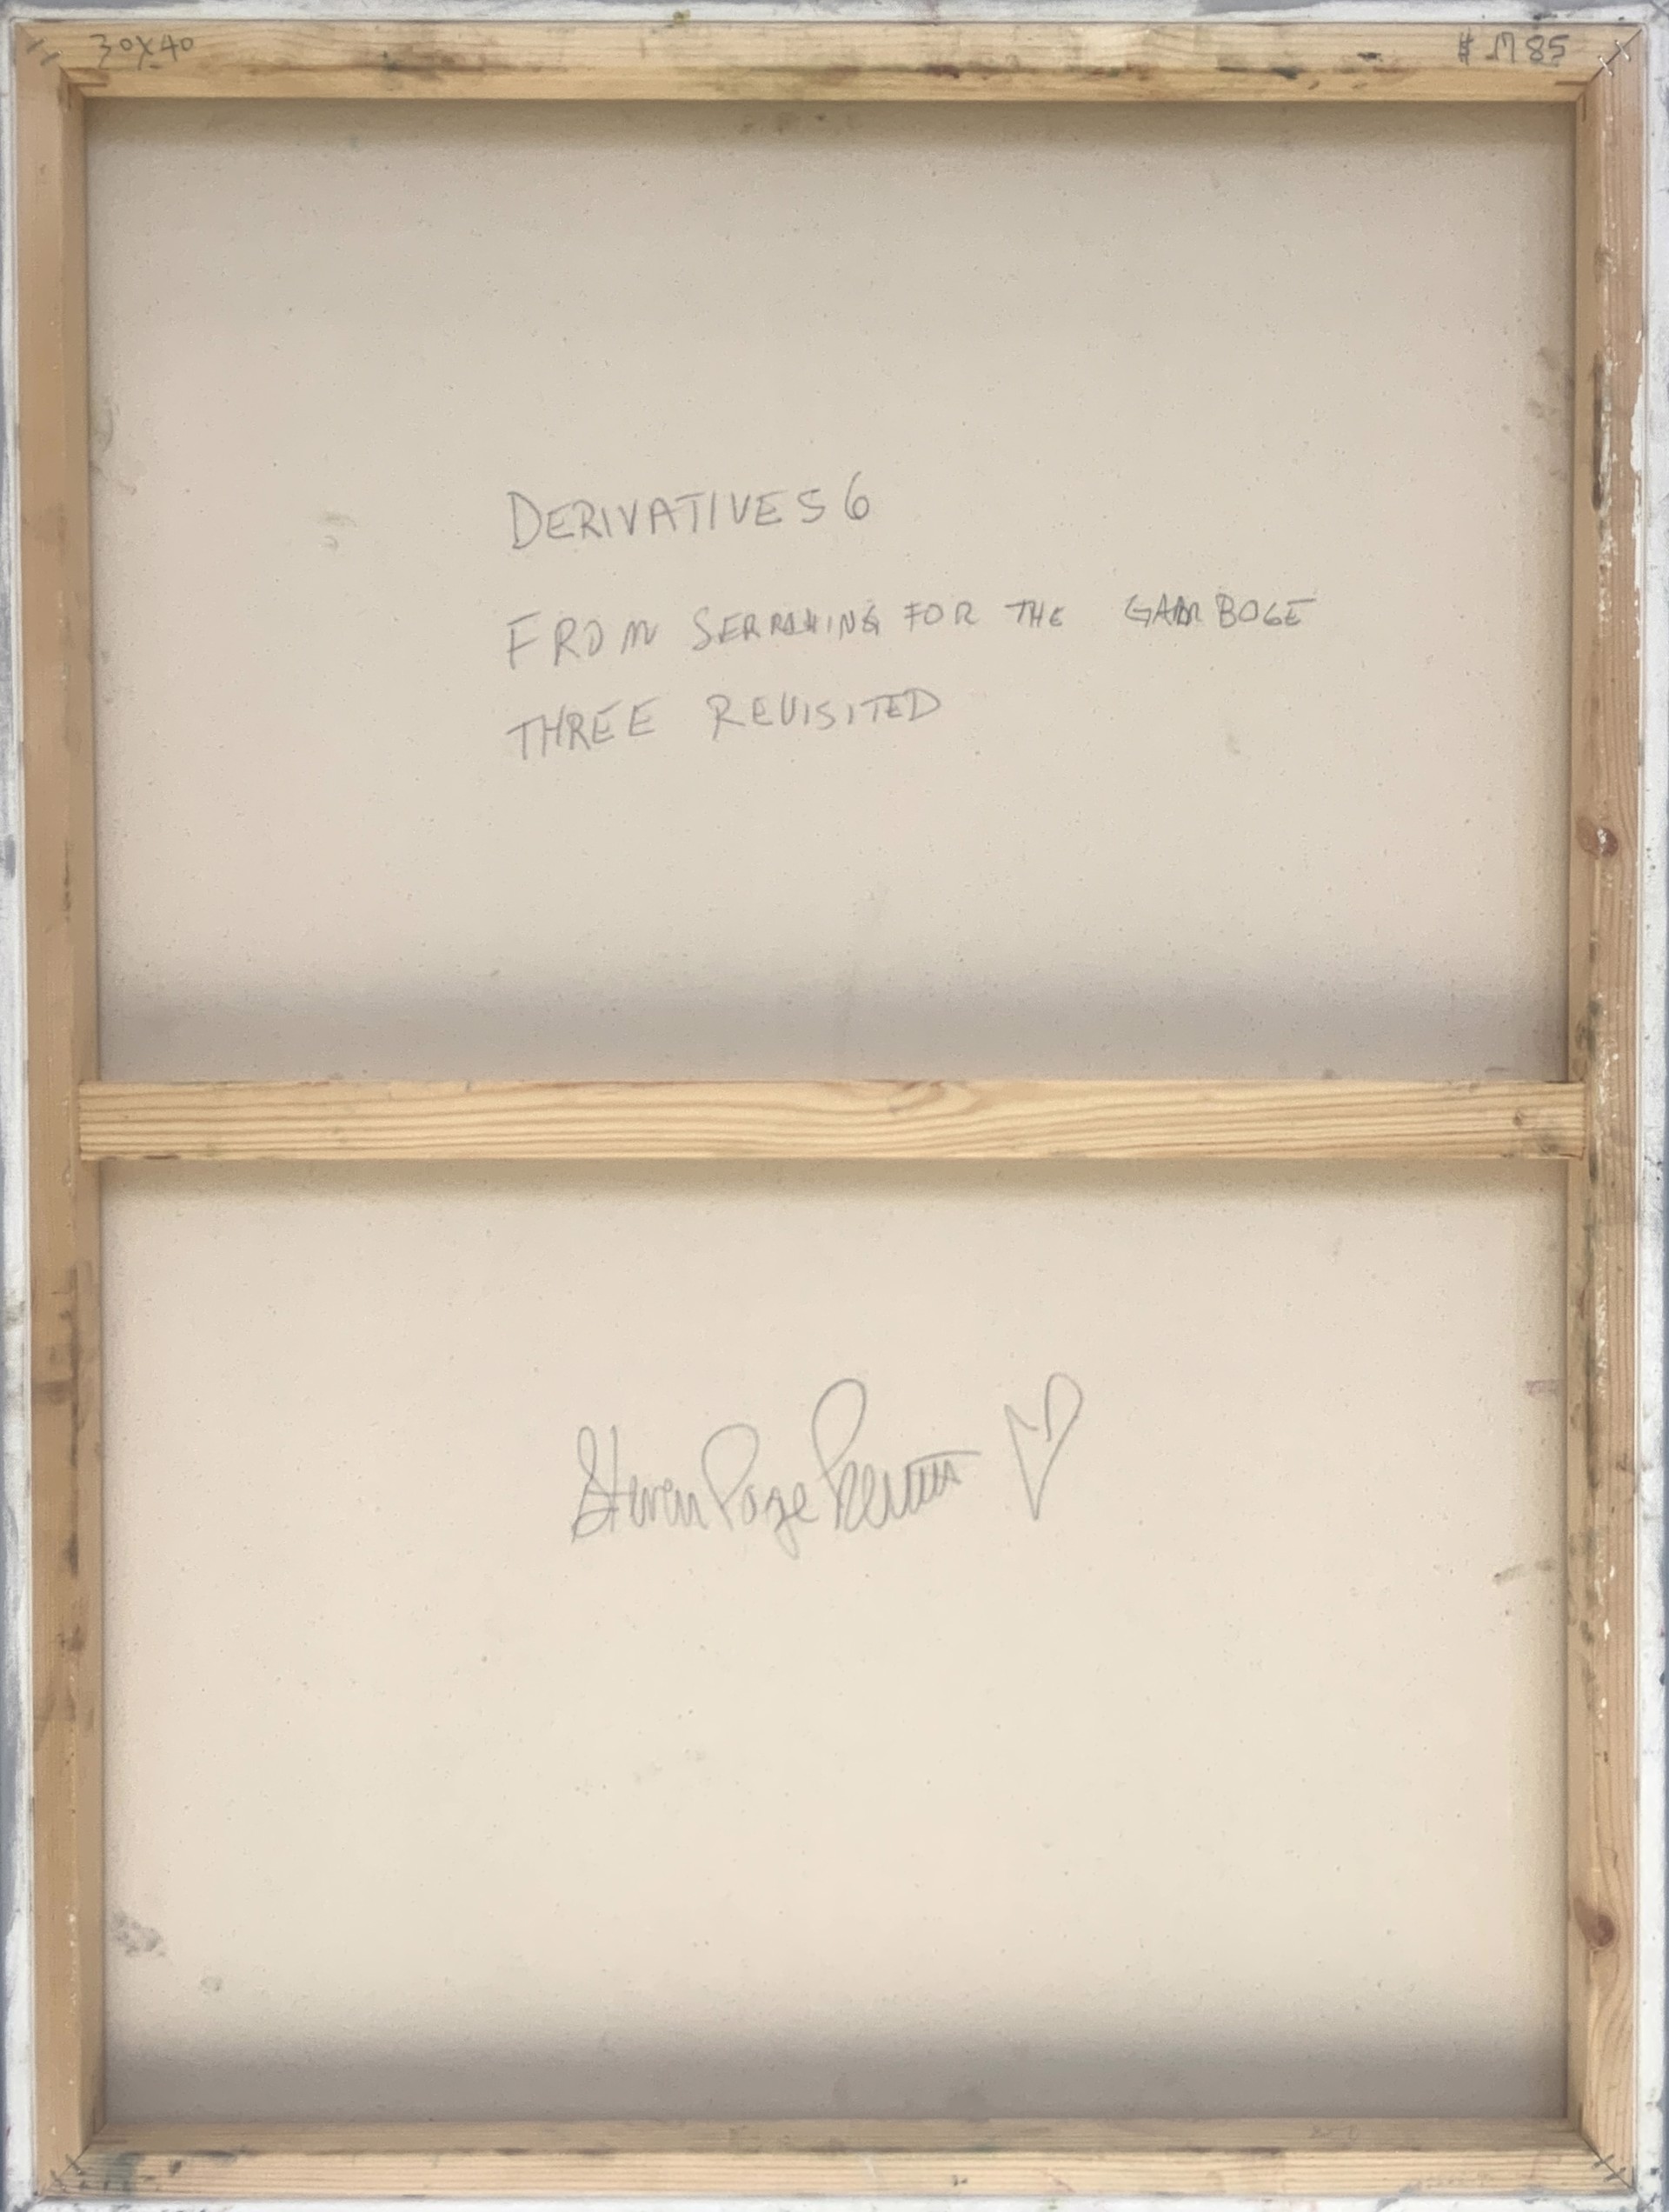 30X40
# 1785
DERIVATIVES 6
FROM SERRAHING FOR THE GAMBOGE
THREE REVISITED
Steven Page Prewitt